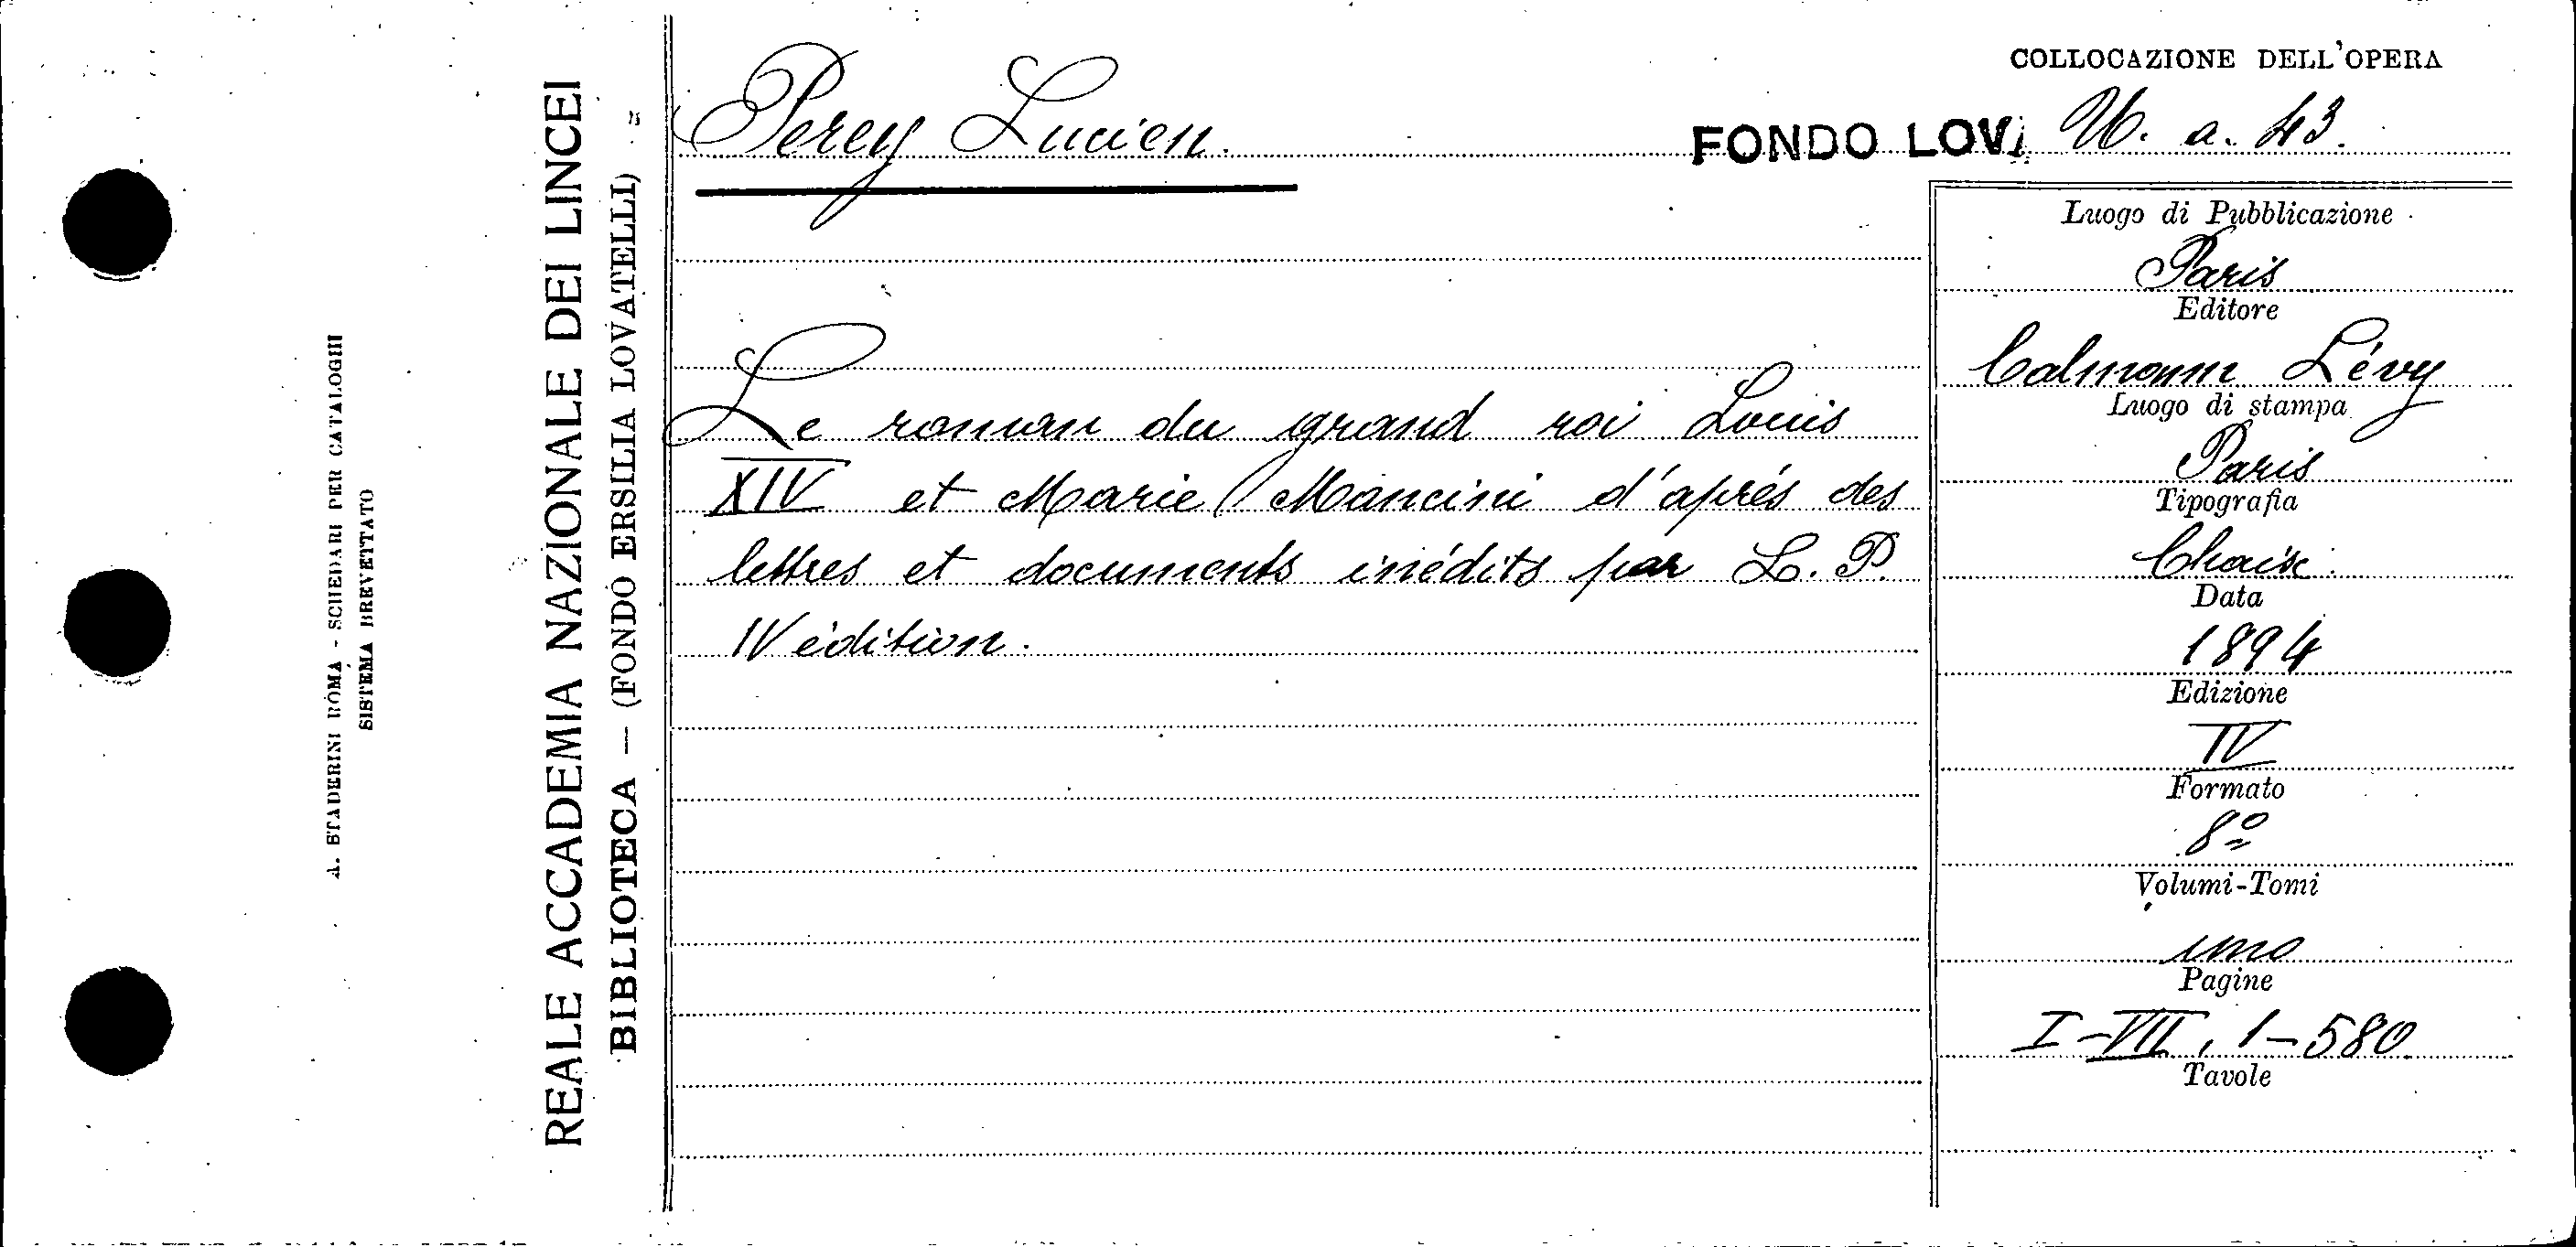 COLLOCAZIONE DELL'OPERA
Perey Lucien.
FONDO LOV. U. a. 43.
Le roman du grand roi Louis
XIV et Marie Mancini d'aprés des
lettres et documents inédits par L. P.
IV édition.
Luogo di Pubblicazione
Paris
Editore
Calmann Lévy
Luogo di stampa
Paris
Tipografia
Chaix
Data
1894
Edizione
IV
Formato
8º
Volumi-Tomi
uno
Pagine
I-VII, 1-580
Tavole
REALE ACCADEMIA NAZIONALE DEI LINCEI
BIBLIOTECA — (FONDO ERSILIA LOVATELLI)
A. STADERINI ROMA - SCHEDARI PER CATALOGHI
SISTEMA BREVETTATO